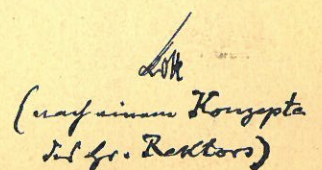 (nach einem Konzepte
des Hr. Rektors)